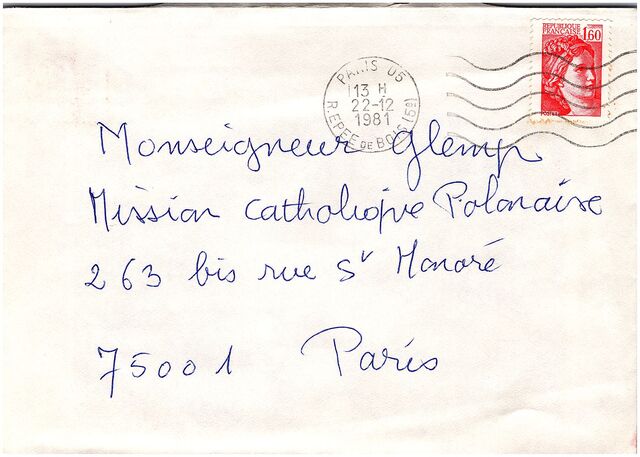 REPUBLIQUE
FRANCAISE 1,60
PARIS 05
13 H
22-12
1981
R.EPEE DE BOIS (5e)
Monseigneur Glemp
Mission Catholique Polonaise
263 bis rue St Honoré
75001 Paris